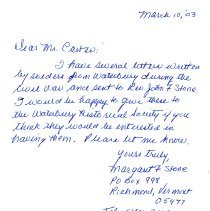 March 10, '03
Dear Mr. Carter:
I have several letters written
by soldiers from Waterbury during the
Civil War and sent to Rev John F Stone.
I would be happy to give these to
the Waterbury Historical Society if you
think they would be interested in
having them. Please let me know.
Yours truly,
Margaret F Stone
PO Box 998
Richmond, Vermont
05477